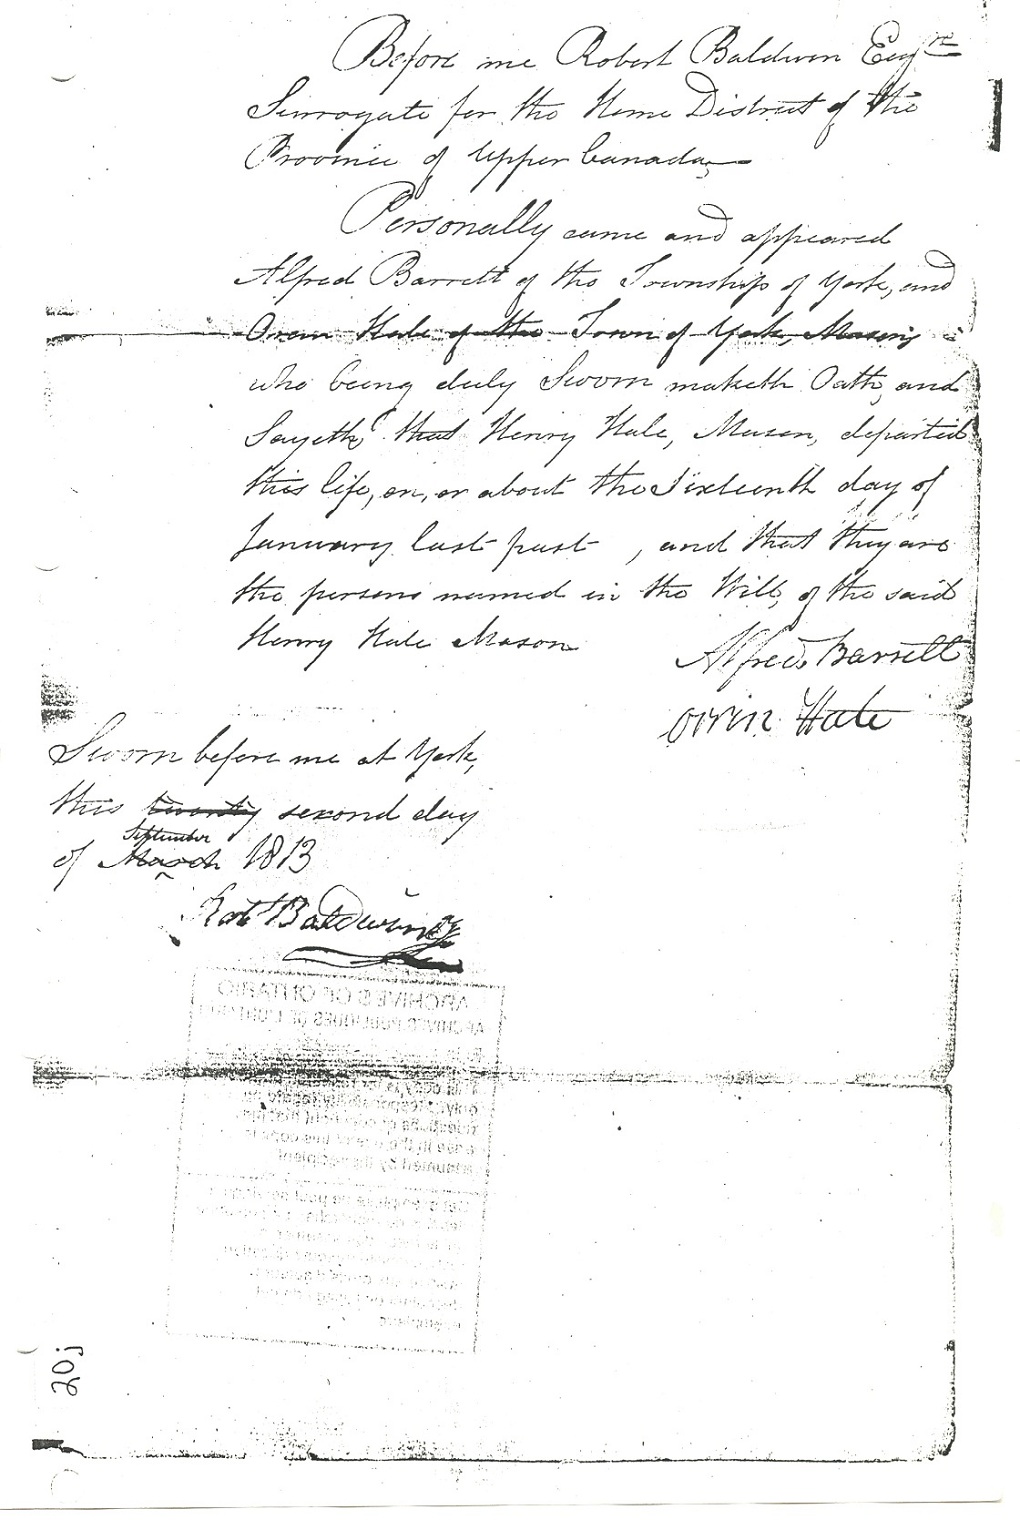 Before me Robert Baldwin Esqre
Surrogate for the Home District of the
Province of Upper Canada,
Personally came and appeared
Alfred Barrett of the Township of York, and
Oran Hale of the Town of York, Mason,
who being duly Sworn maketh Oath, and
Sayeth, that Henry Hale, Mason, departed
this life, on, or about the Sixteenth day of
January last past , and that they are
the persons named in the Will, of the said
Henry Hale Mason
Alfred Barrett
orrin Hale
Sworn before me at York,
this twenty second day
September
of March 1813
Robt Baldwin
ARCHIVES OF ONTARIO
20j